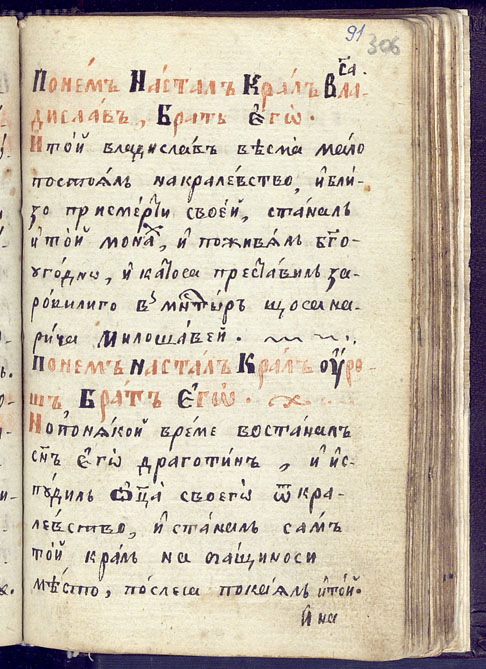 91
306
Понемъ Насталъ Краль Вла-
диславъ, Братъ Егѡ.
И той владиславъ весма мало
постоялъ на кралевство, и бли-
зо при смерти своей, сталъ
и той монах, и поживялъ бг҃о-
угодно, и като са преставилъ за-
ровилиго в мнтыръ що са на-
рича Милошавей.
Понемъ насталъ Краль оуро-
шъ Братъ Егѡ.
Но по някой време востаналъ
сн҃ъ его драготинъ, и ис-
пудилъ ѡц҃а своегѡ ѿ кра-
левство, и сталъ самъ
той краль на
мѣсто, послеша покаялъ и той.
И на